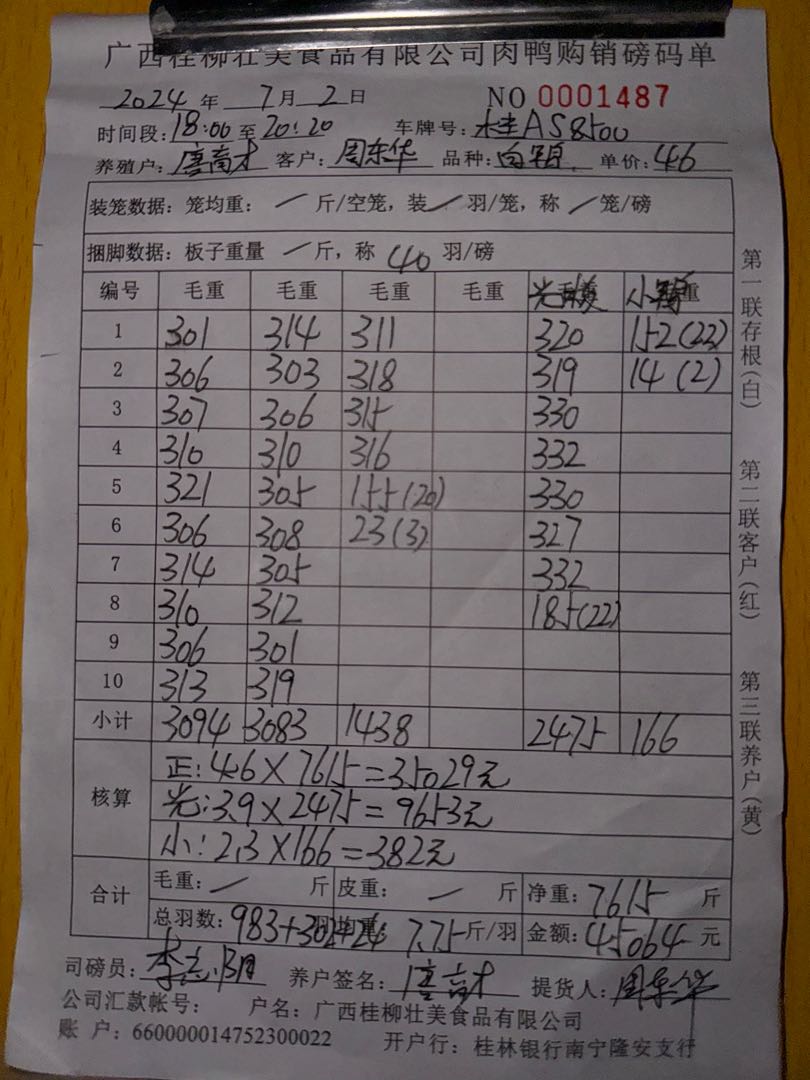 广西桂柳壮美食品有限公司肉鸭购销磅码单
2024年 7月2日 NO 0001487
时间段:18:00至20:20 车牌号:桂AS8500
养殖户:唐高才 客户:周东华 品种:白羽 单价:4.6
装笼数据:笼均重:/斤/空笼,装/羽/笼,称/笼/磅
捆脚数据:板子重量/斤,称40羽/磅
编号 毛重 毛重 毛重 毛重 光 小 重
1 301 314 311 320 152(22)
2 306 303 318 319 14(2)
3 307 306 315 330
4 310 310 316 332
5 321 305 155(20) 330
6 306 308 23(3) 327
7 314 305 332
8 310 312 185(22)
9 306 301
10 313 319
小计 3094 3083 1438 2475 166
核算
正:4.6×7615=35029元
光:3.9×2475=9653元
小:2.3×166=382元
合计
毛重:/斤 皮重:/斤 净重:7615斤
总羽数:983+302+24 羽均重:7.75斤/羽 金额:45064元
司磅员:李志明 养户签名:唐高才 提货人:周东华
公司汇款帐号: 户名:广西桂柳壮美食品有限公司
账 户:660000014752300022 开户行:桂林银行南宁隆安支行
第一联存根(白)
第二联客户(红)
第三联养户(黄)